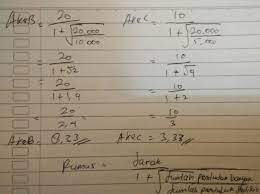 AkeB = 20 / 1+√20.000/10.000    AkeC = 10 / 1+√20.000/5.000
= 20 / 1+√2    = 10 / 1+√4
= 20 / 1+1,4    = 10 / 1+2
= 20 / 2,4    = 10 / 3
AkeB= 8,33    AkeC = 3,33
Rumus = Jarak / 1+√Jumlah penduduk / Jumlah penduduk